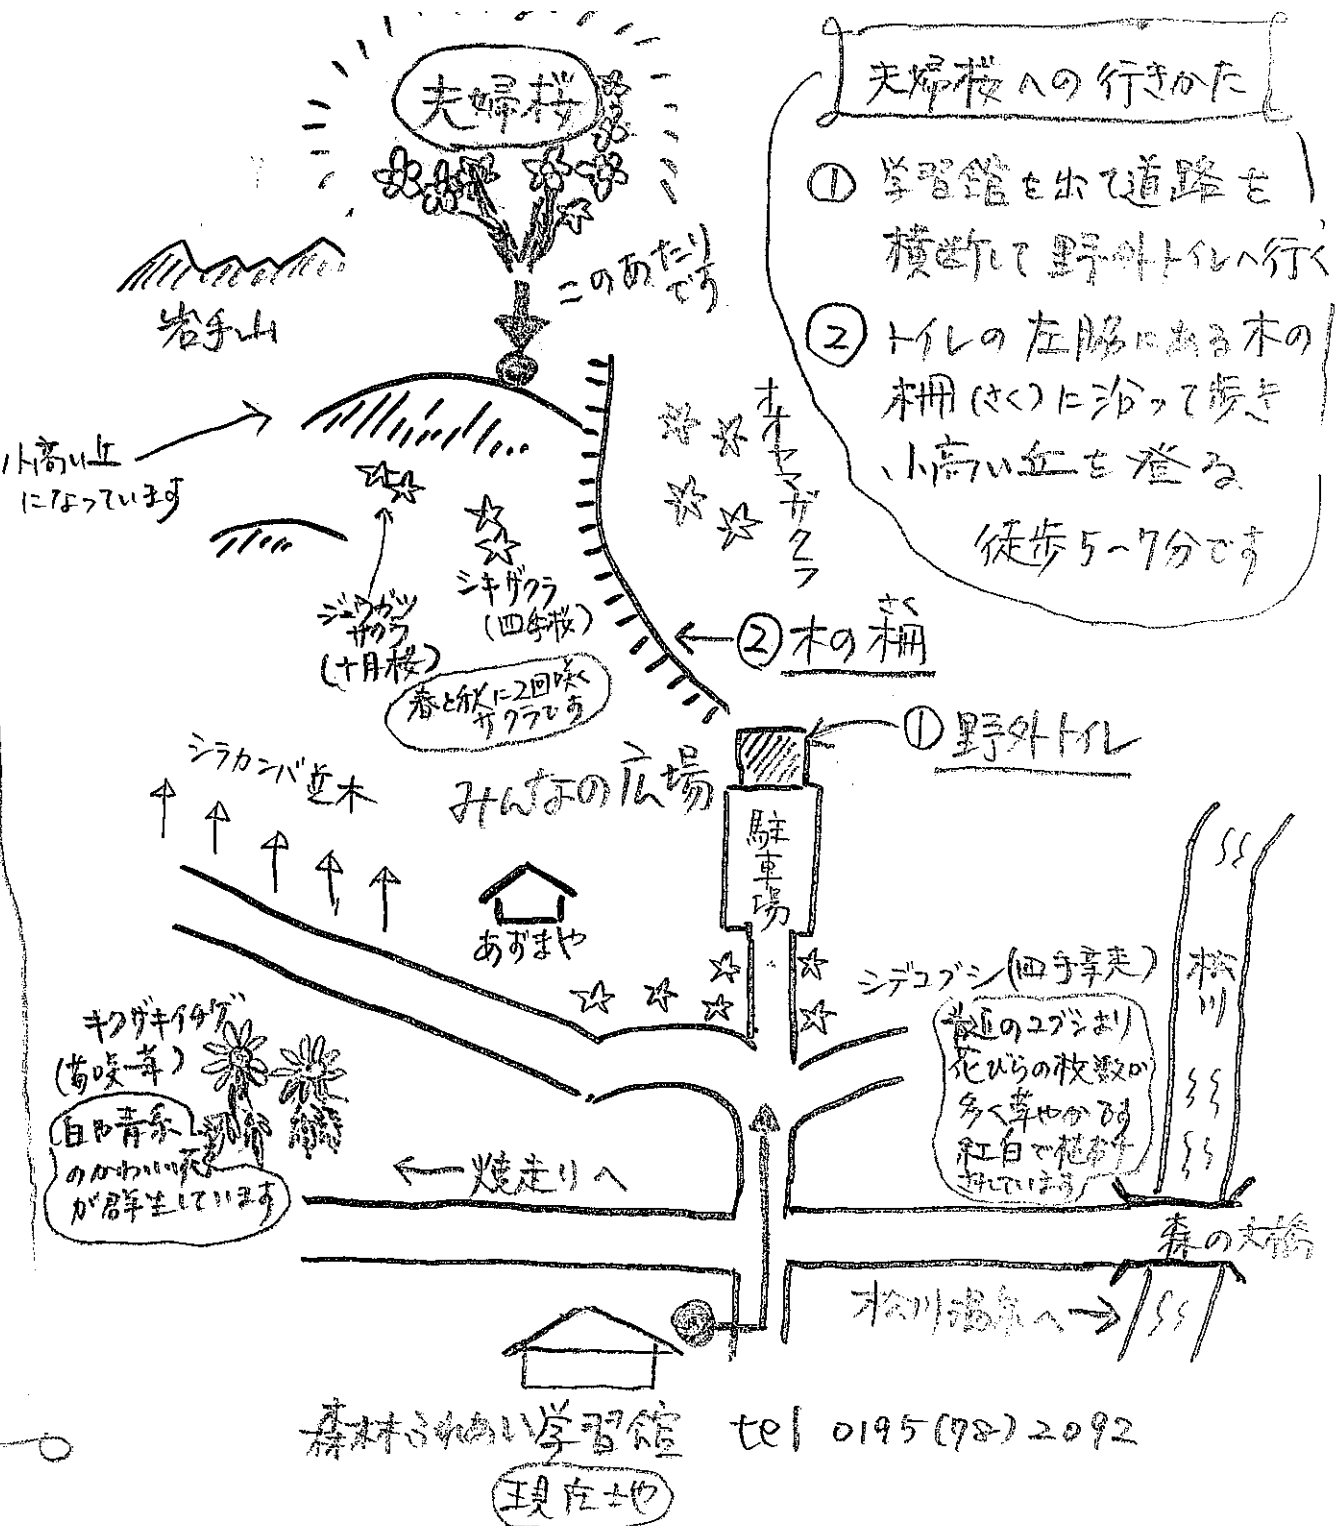 夫婦桜
夫婦桜への行きかた
① 学習館を出て道路を
横断して野外トイレへ行く
② トイレの左脇にある木の
柵(さく)に沿って歩き
小高い丘を登る
徒歩5~7分です
このあたり
です
岩手山
小高い丘
になっています
オオヤマザクラ
シキザクラ
(四季桜)
ジュウガツ
ザクラ
(十月桜)
春と秋に2回咲く
サクラです
② 木の柵
さく
① 野外トイレ
シラカンバ並木
みんなの広場
駐車場
あずまや
シデコブシ(四手辛夷)
のコブシより
花びらの枚数が
多く華やかです
紅白で
しています
松川
キクザキイチゲ
(菊咲一華)
白や青系
のかわいい花
が群生しています
←焼走りへ
森の大橋
松川温泉へ→
森林ふれあい学習館 tel 0195(78)2092
現在地